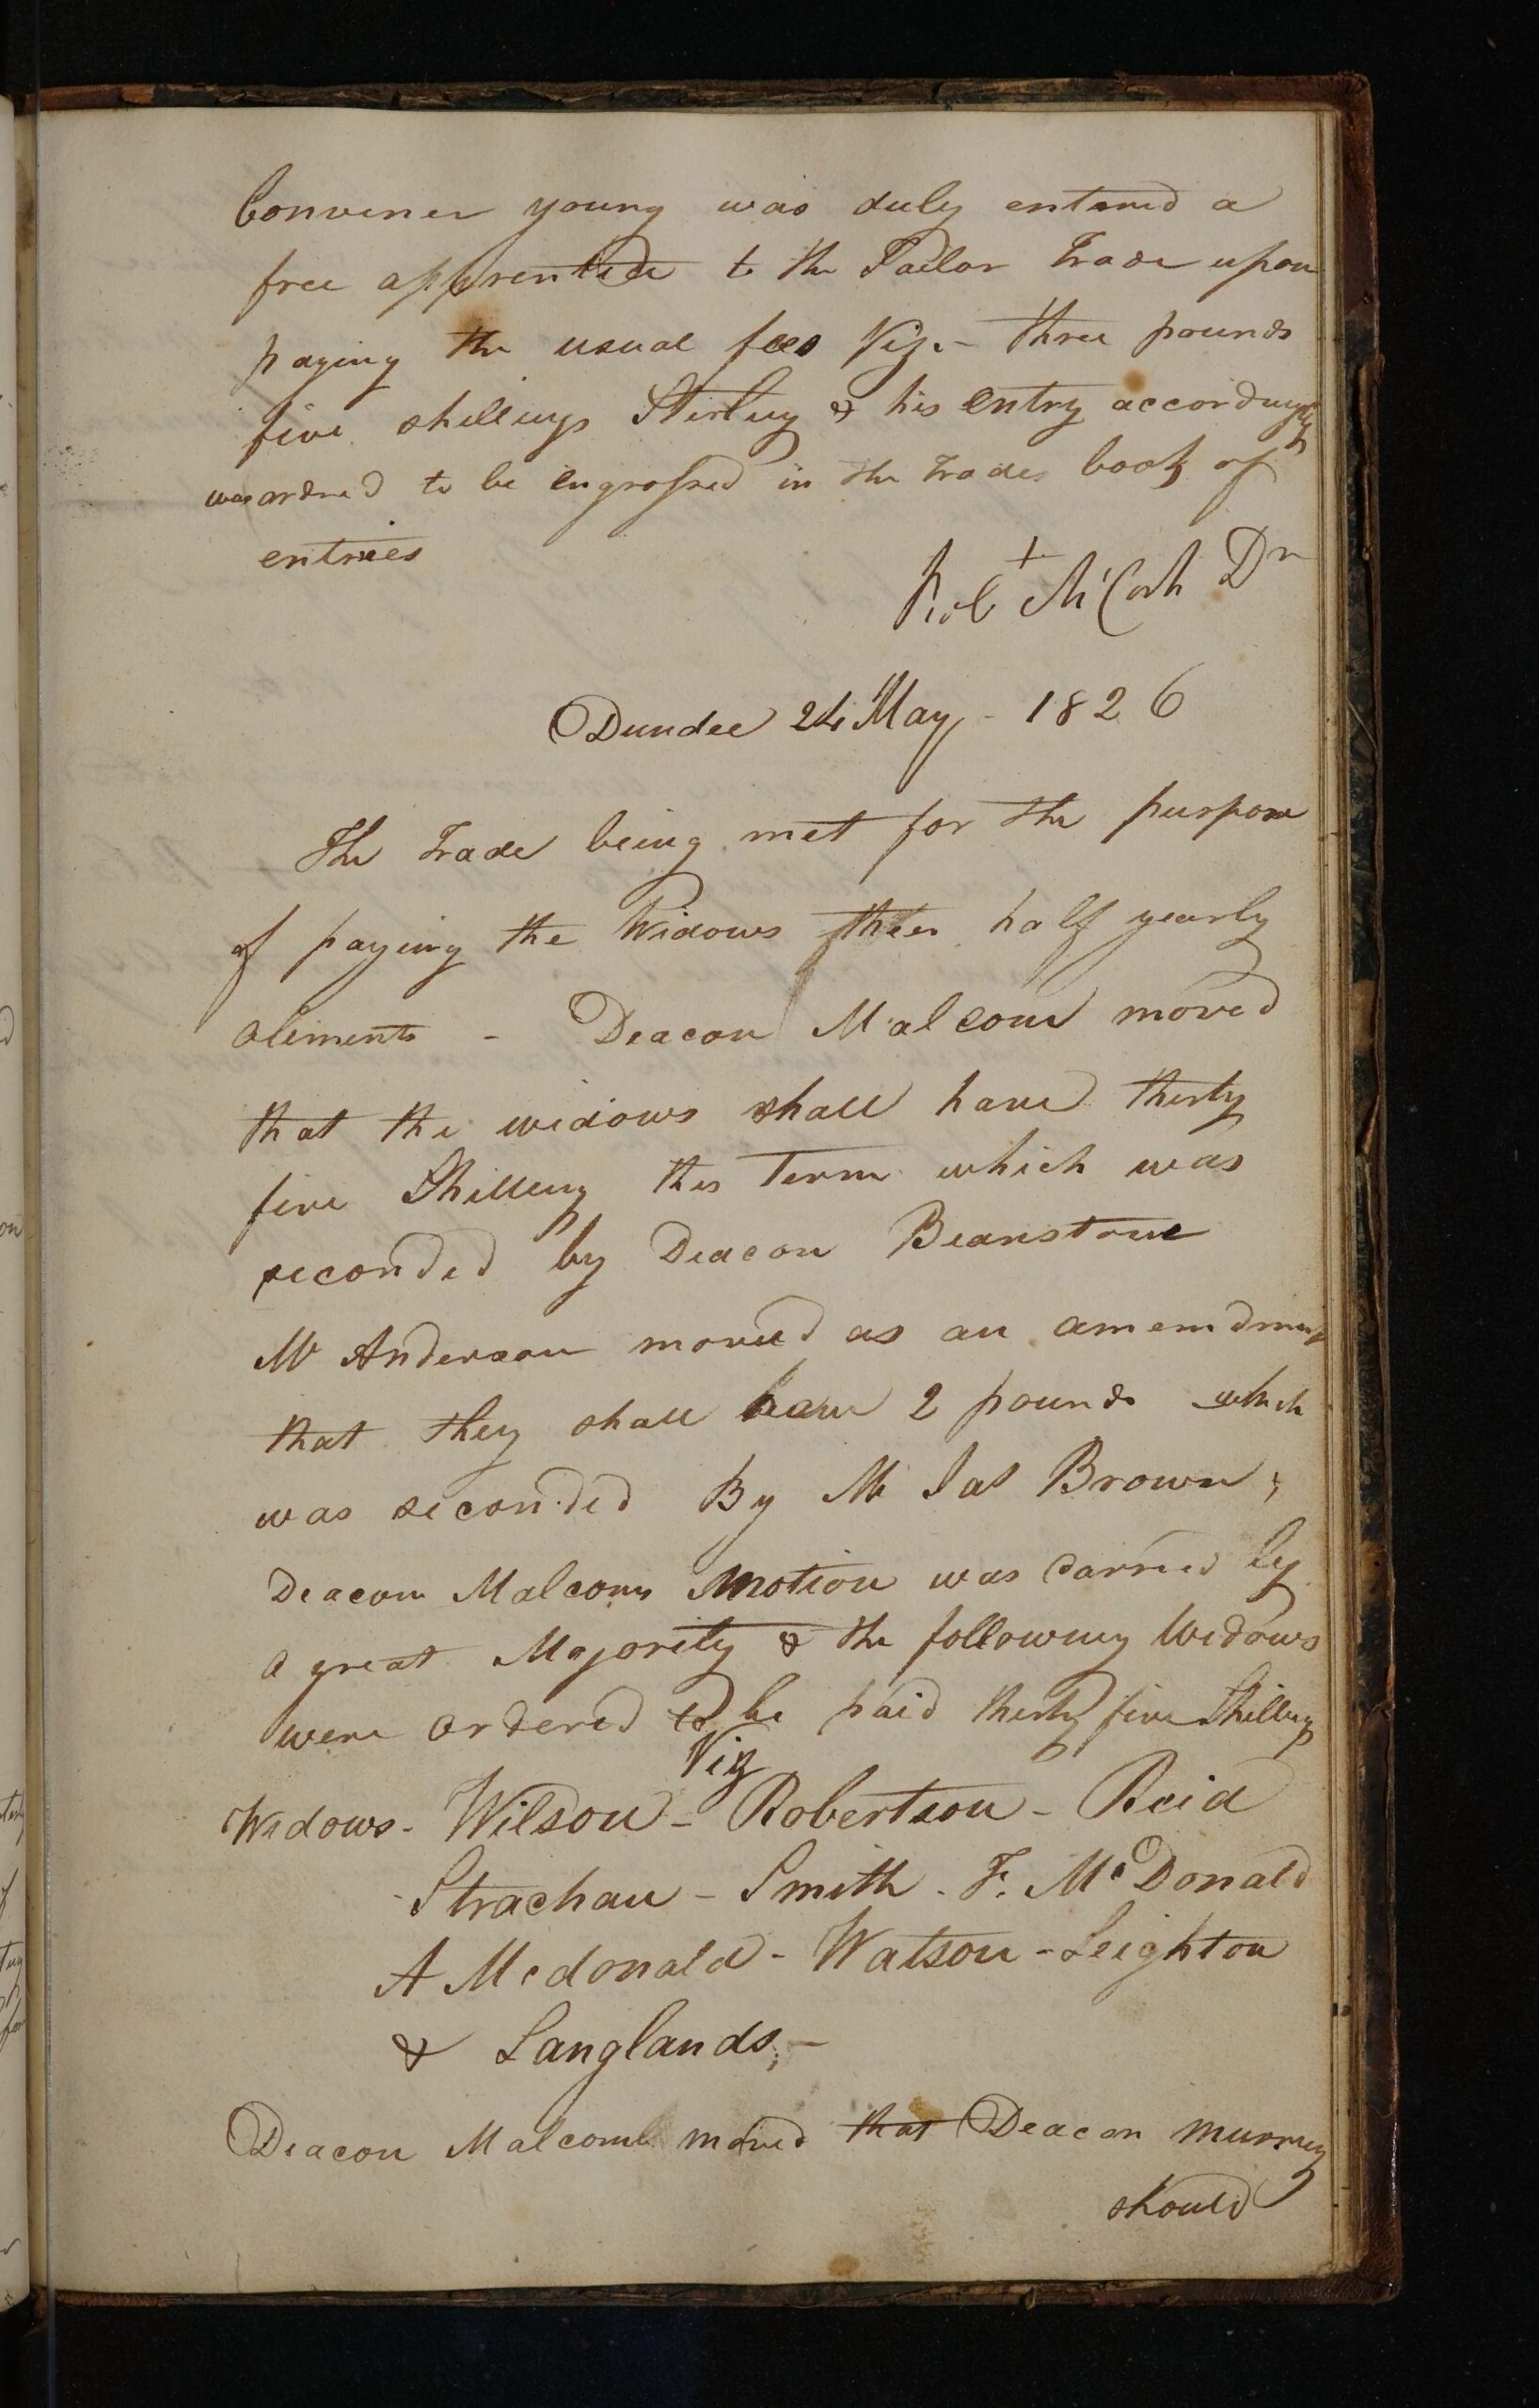 Convener young was duly entered a
free apprentice to the Tailor Trade upon
paying the usual fees Viz. - three pounds
five shillings Stirling & his entry accordingly
was ordred to be engrossed in the trades book of
entries
Robt McCosh Dn
Dundee 24 May - 1826
The Trade being met for the purpose
of paying the Widows their half yearly
aliments - Deacon Malcom moved
that the widows shall have thirty
five Shilling this Term which was
seconded by Deacon Beanstone
Mr Anderson moved as an amendment
that they shall have 2 pounds which
was seconded By Mr Jas Brown;
Deacon Malcoms Motion was carried by
a great Majority & the following Widows
were ordered to be paid thirty five Shilling
Viz
Widows - Wilson - Robertson - Reid
Strachan - Smith - F. McDonald
A Mcdonald - Watson - Leighton
& Langlands; -
Deacon Malcomb moved that Deacon Murray
should